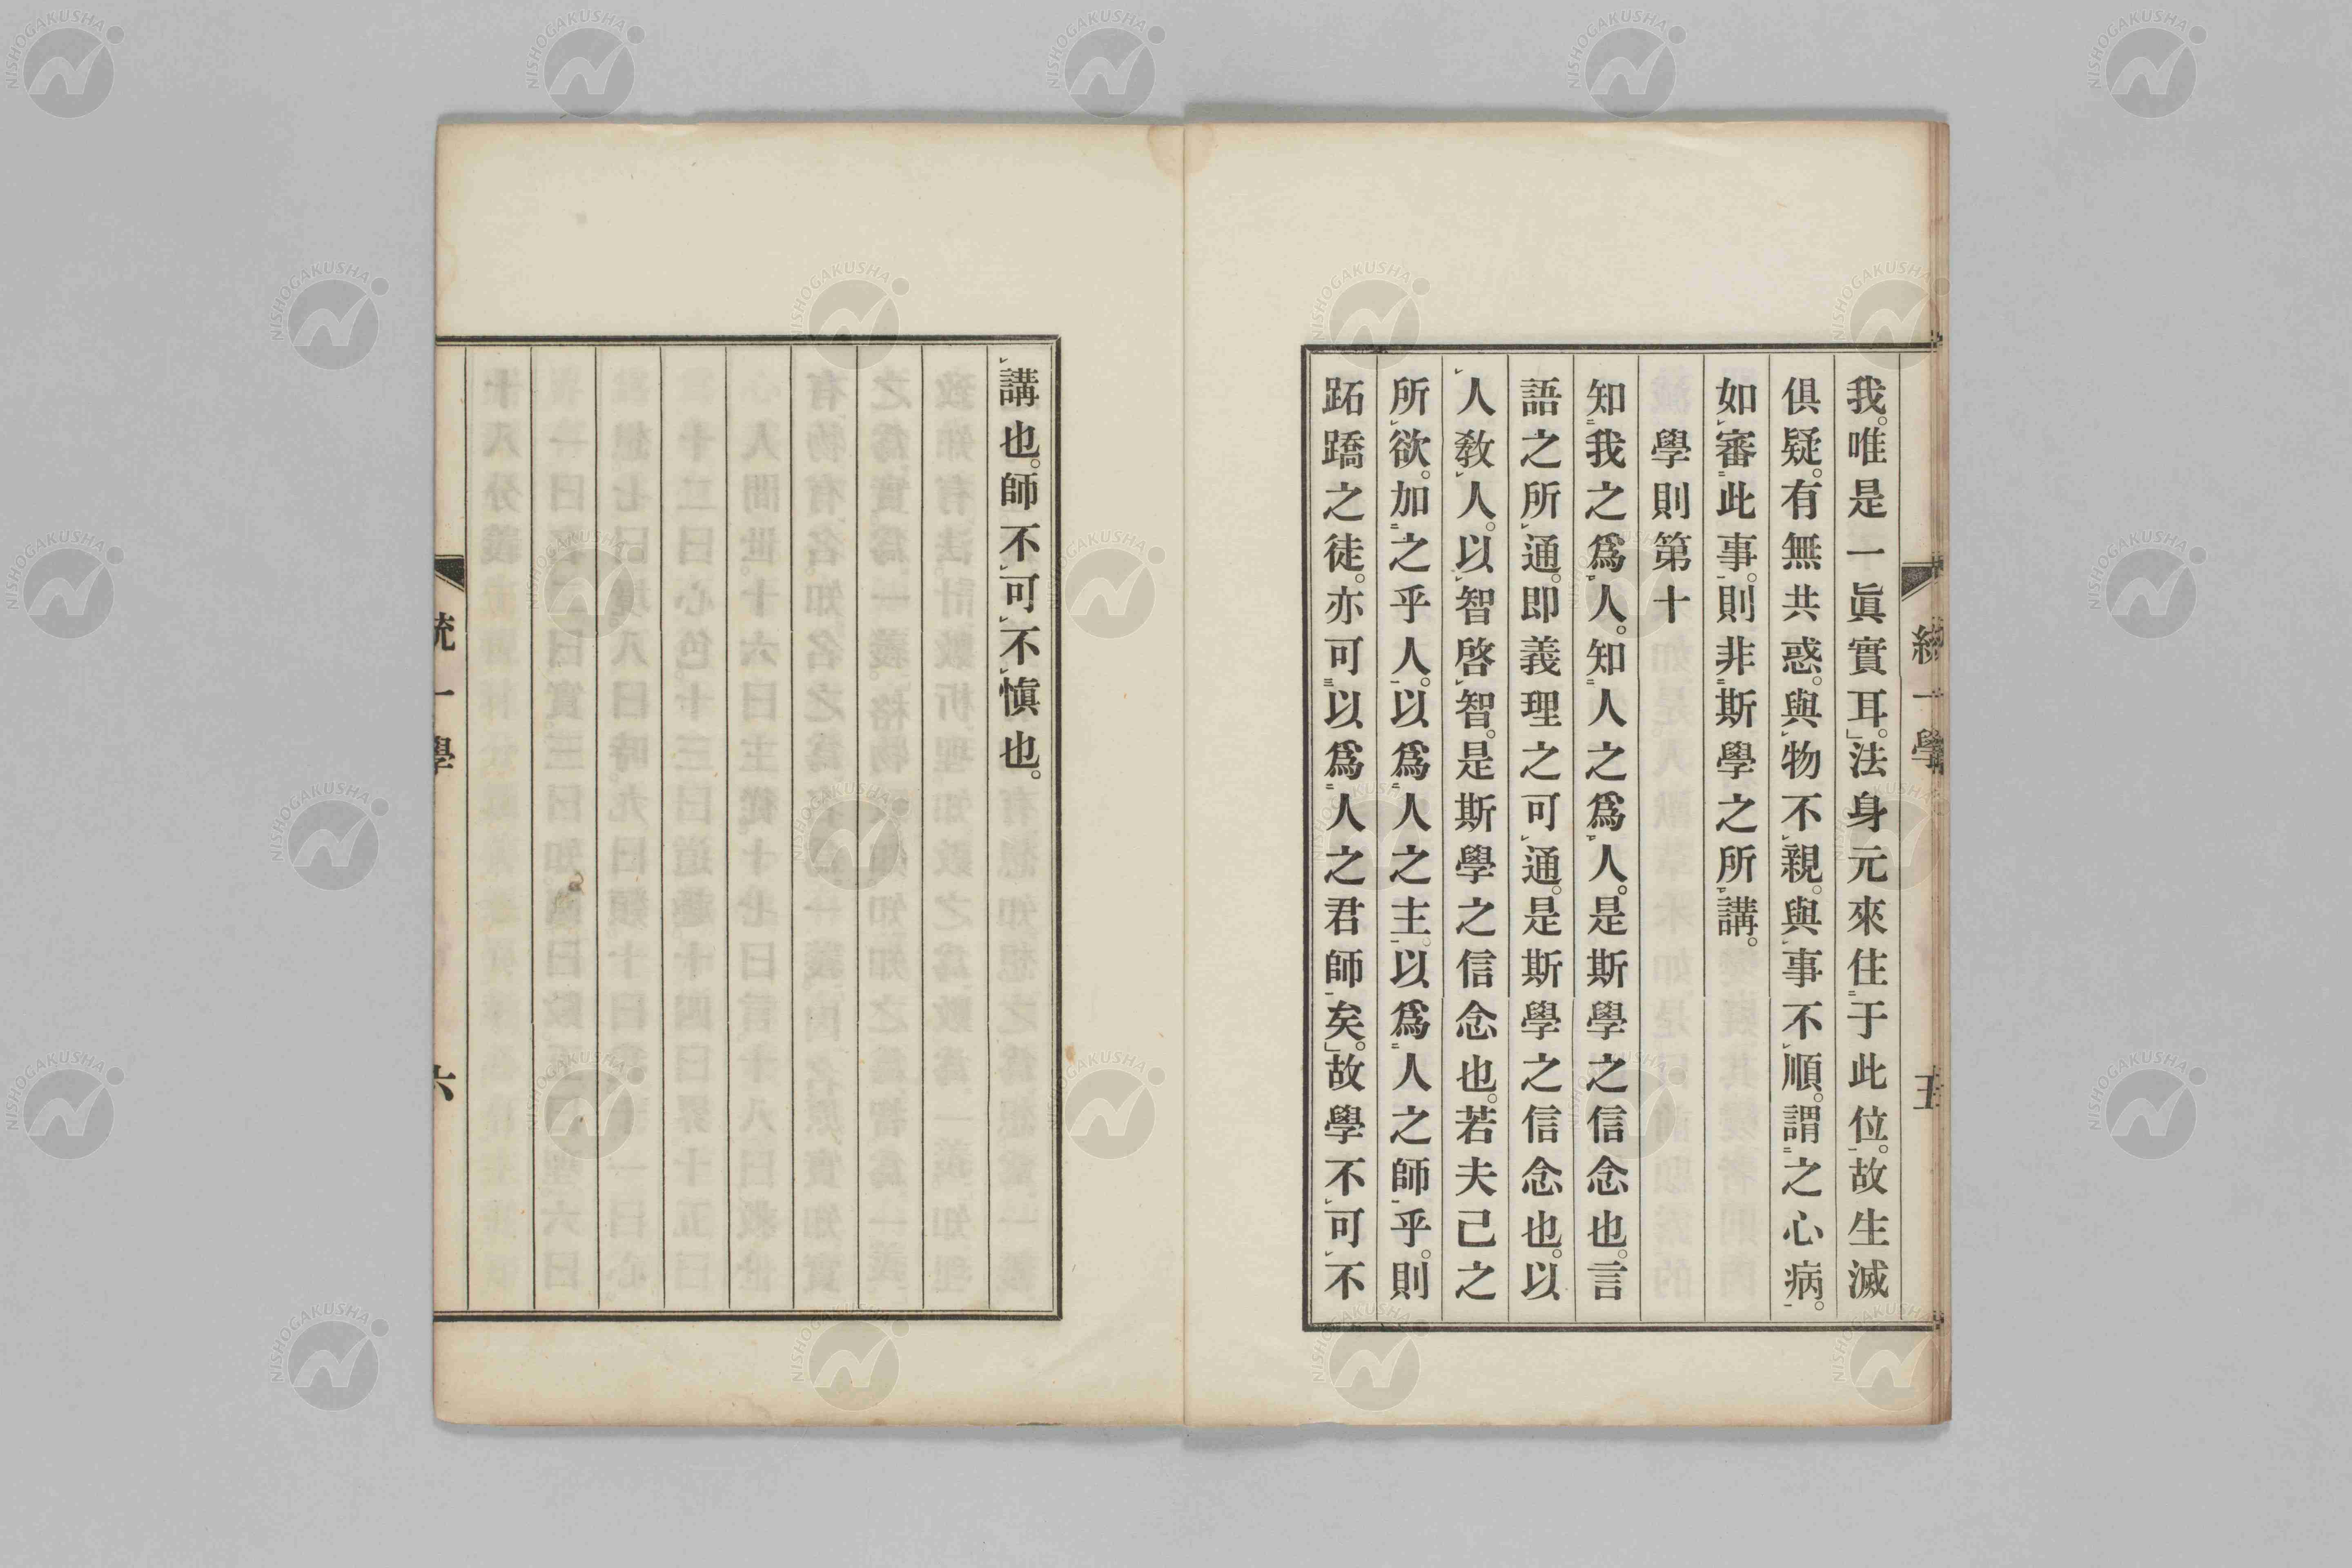 我。唯是一眞實耳。法身元來住于此位。故生滅
俱疑。有無共惑。與物不親。與事不順。謂之心病。
如審此事。則非斯學之所講。
學則第十
知我之爲人。知人之爲人。是斯學之信念也。言
語之所通。即義理之可通。是斯學之信念也。以
人敎人。以智啓智。是斯學之信念也。若夫己之
所欲。加之乎人。以爲人之主。以爲人之師乎。則
跖蹻之徒。亦可以爲人之君師矣。故學不可不
統一學
五
講也。師不可不愼也。
統一學
六
NISHOGAKUSHA